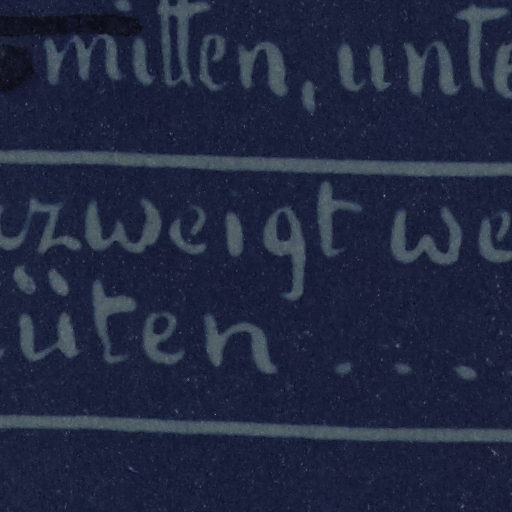 mitten, unte
rzweigt we
üten ...